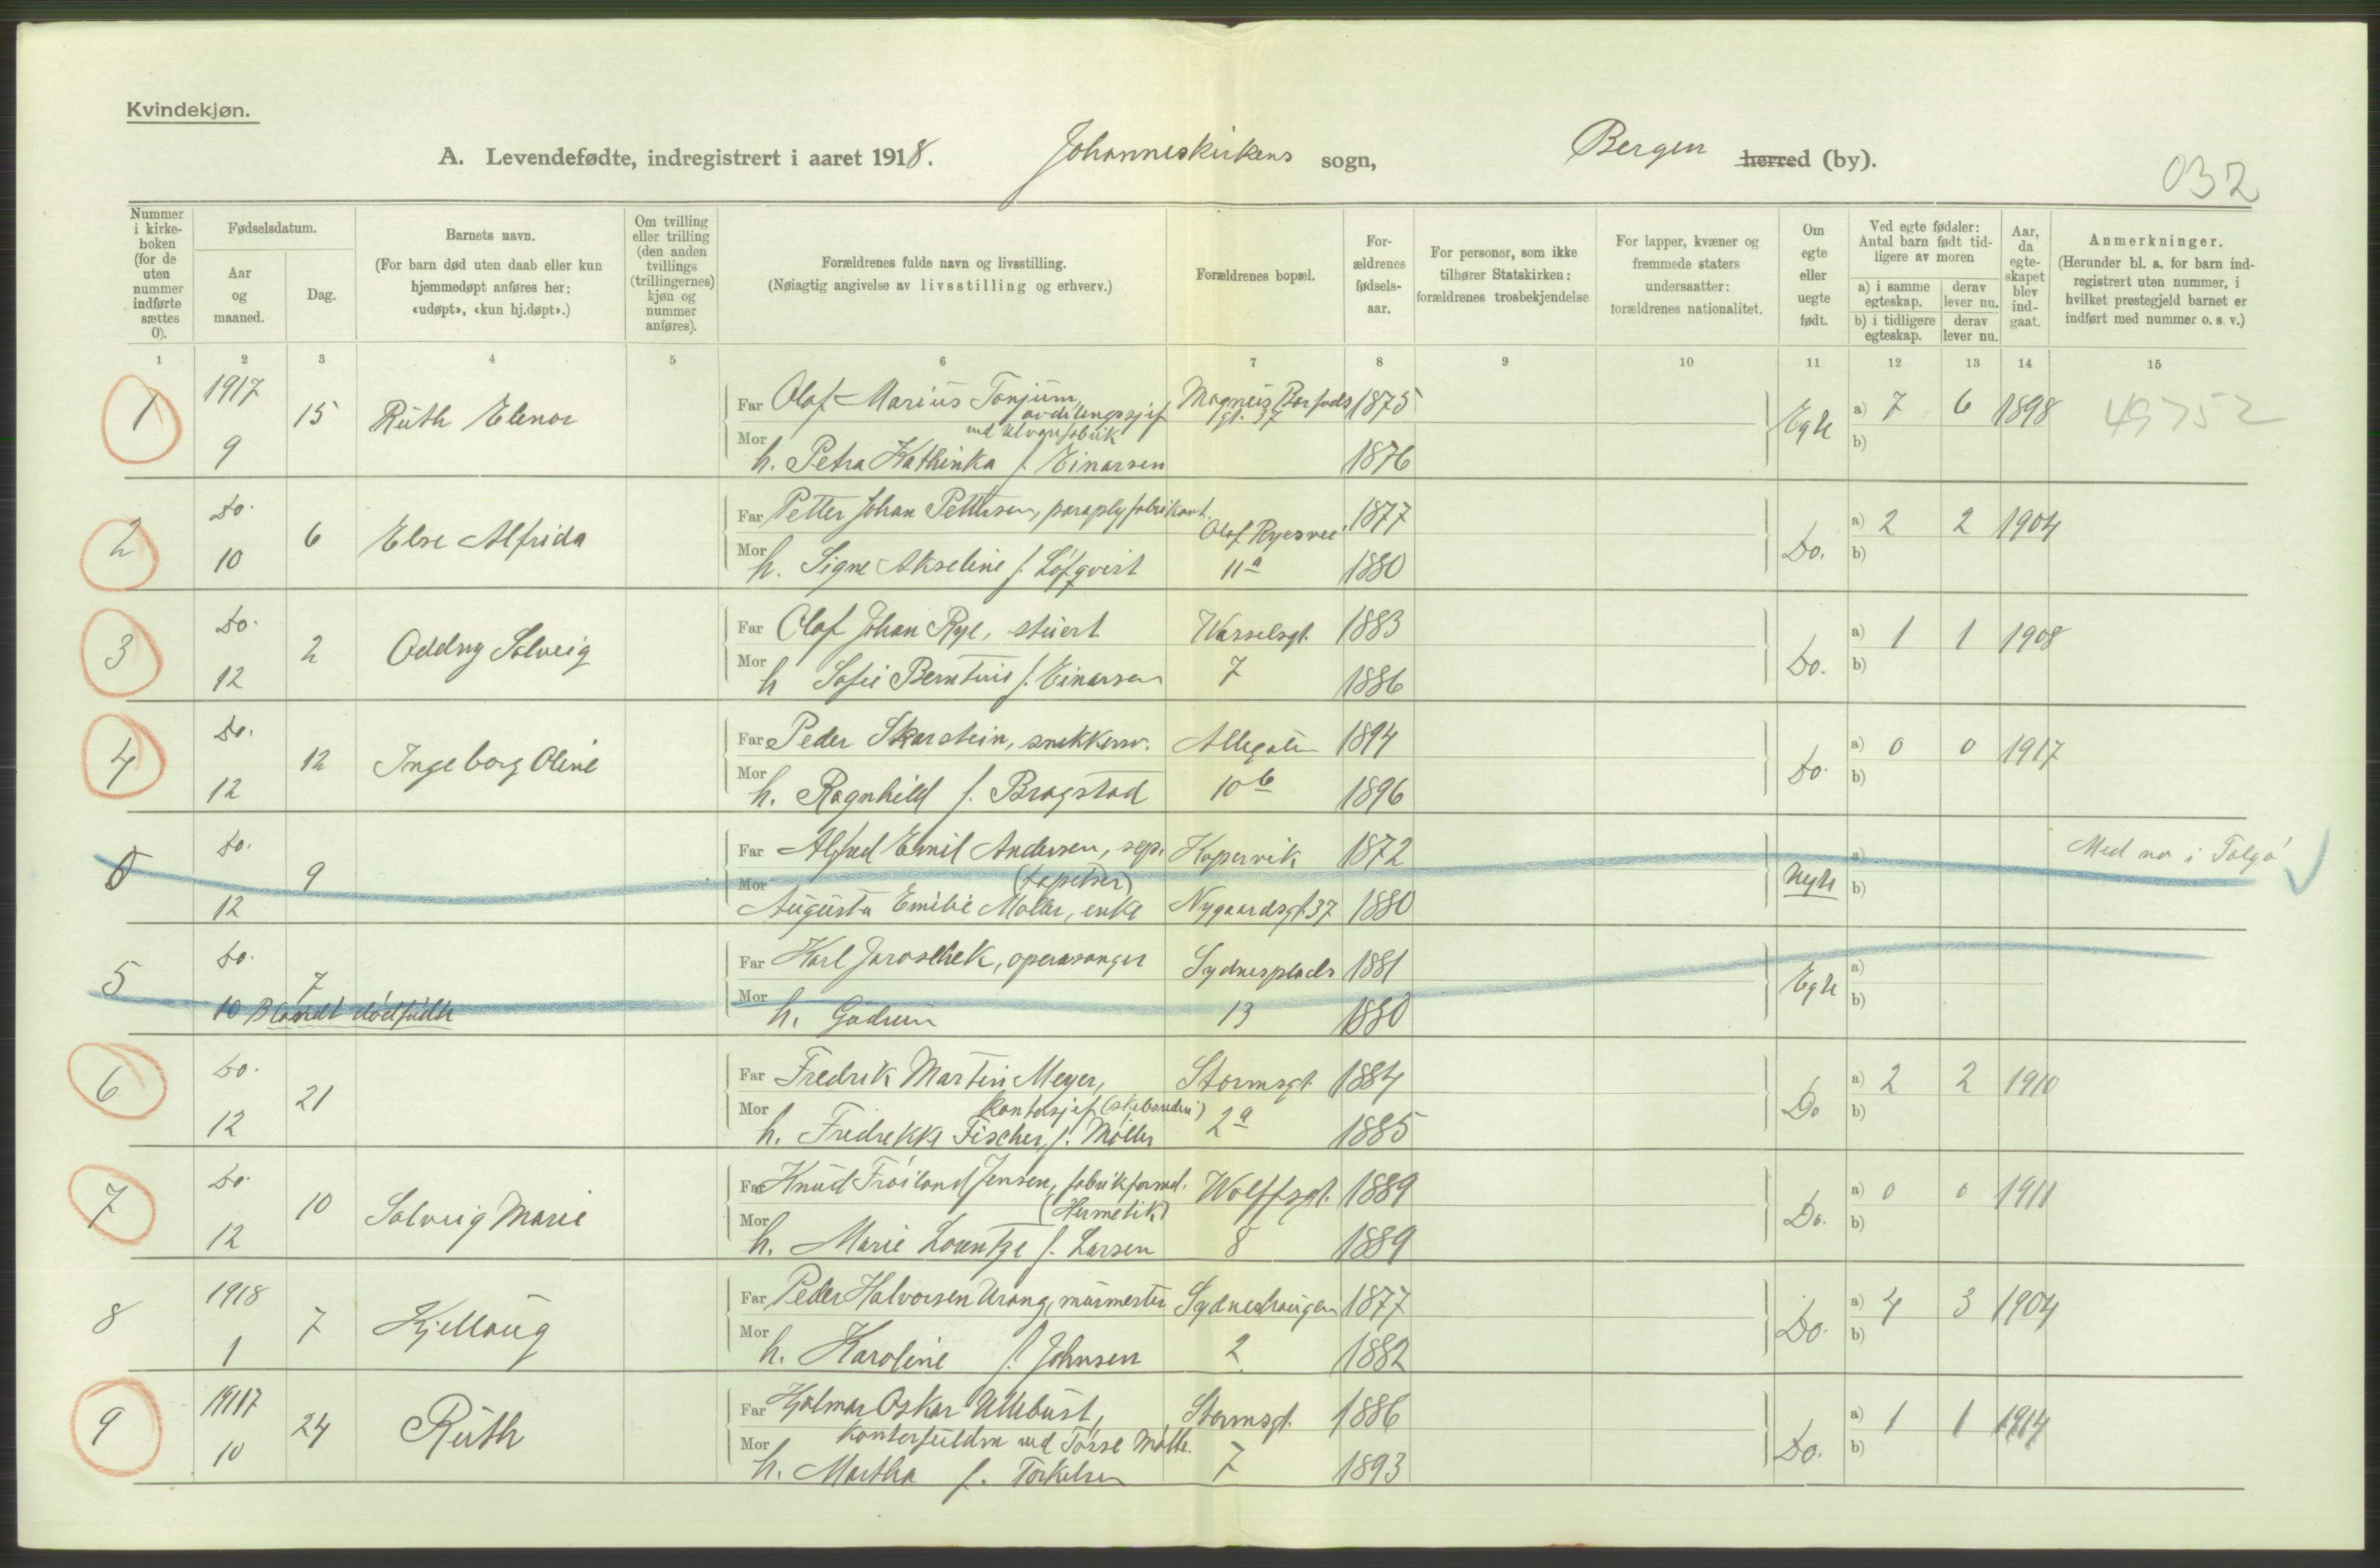 Kvindekjøn.
A. Levendefødte, indregistrert i aaret 1918. Johanneskirkens sogn, Bergen herred (by).
032
Nummer i kirke- boken (for de uten nummer indførte sættes 0).
Fødselsdatum.
Aar og maaned.
Dag.
Barnets navn.
(For barn død uten daab eller kun hjemmedøpt anføres her: «udøpt», «kun hj.døpt».)
Om tvilling eller trilling (den anden tvillings (trillingernes) kjøn og nummer anføres).
Forældrenes fulde navn og livsstilling.
(Nøiagtig angivelse av livsstilling og erhverv.)
Forældrenes bopæl.
For- ældrenes fødsels- aar.
For personer, som ikke tilhører Statskirken: forældrenes trosbekjendelse
For lapper, kvæner og fremmede staters undersaatter: forældrenes nationalitet.
Om egte eller uegte født.
Ved egte fødsler: Antal barn født tid- ligere av moren
a) i samme egteskap. derav lever nu.
b) i tidligere egteskap. derav lever nu.
Aar, da egte- skapet blev ind- gaat.
Anmerkninger.
(Herunder bl. a. for barn ind- registrert uten nummer, i hvilket prestegjeld barnet er indført med nummer o. s. v.)
1 2 3 4 5 6 7 8 9 10 11 12 13 14 15
1 1917 9 15 Ruth Elenor
Far Olaf Marius Tonjum, avdelingssjef Magnus Barfods gt. 37 1875
ved Ulvarefabrik
Mor h. Petra Kathinka f. Einarsen 1876
Egte a) 7 6 1898 b)
49752
2 Do. 10 6 Else Alfrida
Far Petter Johan Pettersen, paraplyfabrikant. Olaf Ryesvei 1877
Mor h. Signe Akseline f. Löfqvist 11a 1880
Do. a) 2 2 1904 b)
3 Do. 12 2 Oddny Solveig
Far Olaf Johan Rye, stuert Wesselsgt. 1883
Mor h Sofie Berntine f. Einarsen 7 1886
Do. a) 1 1 1908 b)
4 Do. 12 12 Ingeborg Oline
Far Peder Skarstein, snekkersv. Allegaten 1894
Mor h. Ragnhild f. Brogstad 10b 1896
Do. a) 0 0 1917 b)
0 Do. 12 9
Far Alfred Emil Andersen, sep. Kopervik 1872
(tapetser)
Mor Augusta Emilie Møller, enke Nygaardsgt. 37 1880
Uegte a) b)
Med no i
5 Do. 10 7 Blandt dødfødte
Far Karl Jaroschek, operasanger Sydnesplads 1881
Mor h. Gudrun 13 1880
Egte a) b)
6 Do. 12 21
Far Fredrik Martin Meyer, Stormsgt. 1884
Kontorsjef (skibsrederi)
Mor h. Fredrikke Fischer, f. Møller 2a 1885
Do a) 2 2 1910 b)
7 Do. 12 10 Solveig Marie
Far Knud Fröiland Jensen, fabrikformd. Wolffsgt. 1889
(Hermetik)
Mor h. Marie Lorentze f. Larsen 8 1889
Do. a) 0 0 1911 b)
8 1918 1 7 Kjellaug
Far Peder Halvorsen Urang, murmester Sydneshaugen 1877
Mor h. Karoline f. Johnsen 2 1882
Do. a) 4 3 1904 b)
9 1917 10 24 Ruth
Far Hjalmar Oskar Ullebust, Stormsgt. 1886
Kontorfuldm ved Mølle.
Mor h. Martha f. Torkelsen 7 1893
Do. a) 1 1 1914 b)